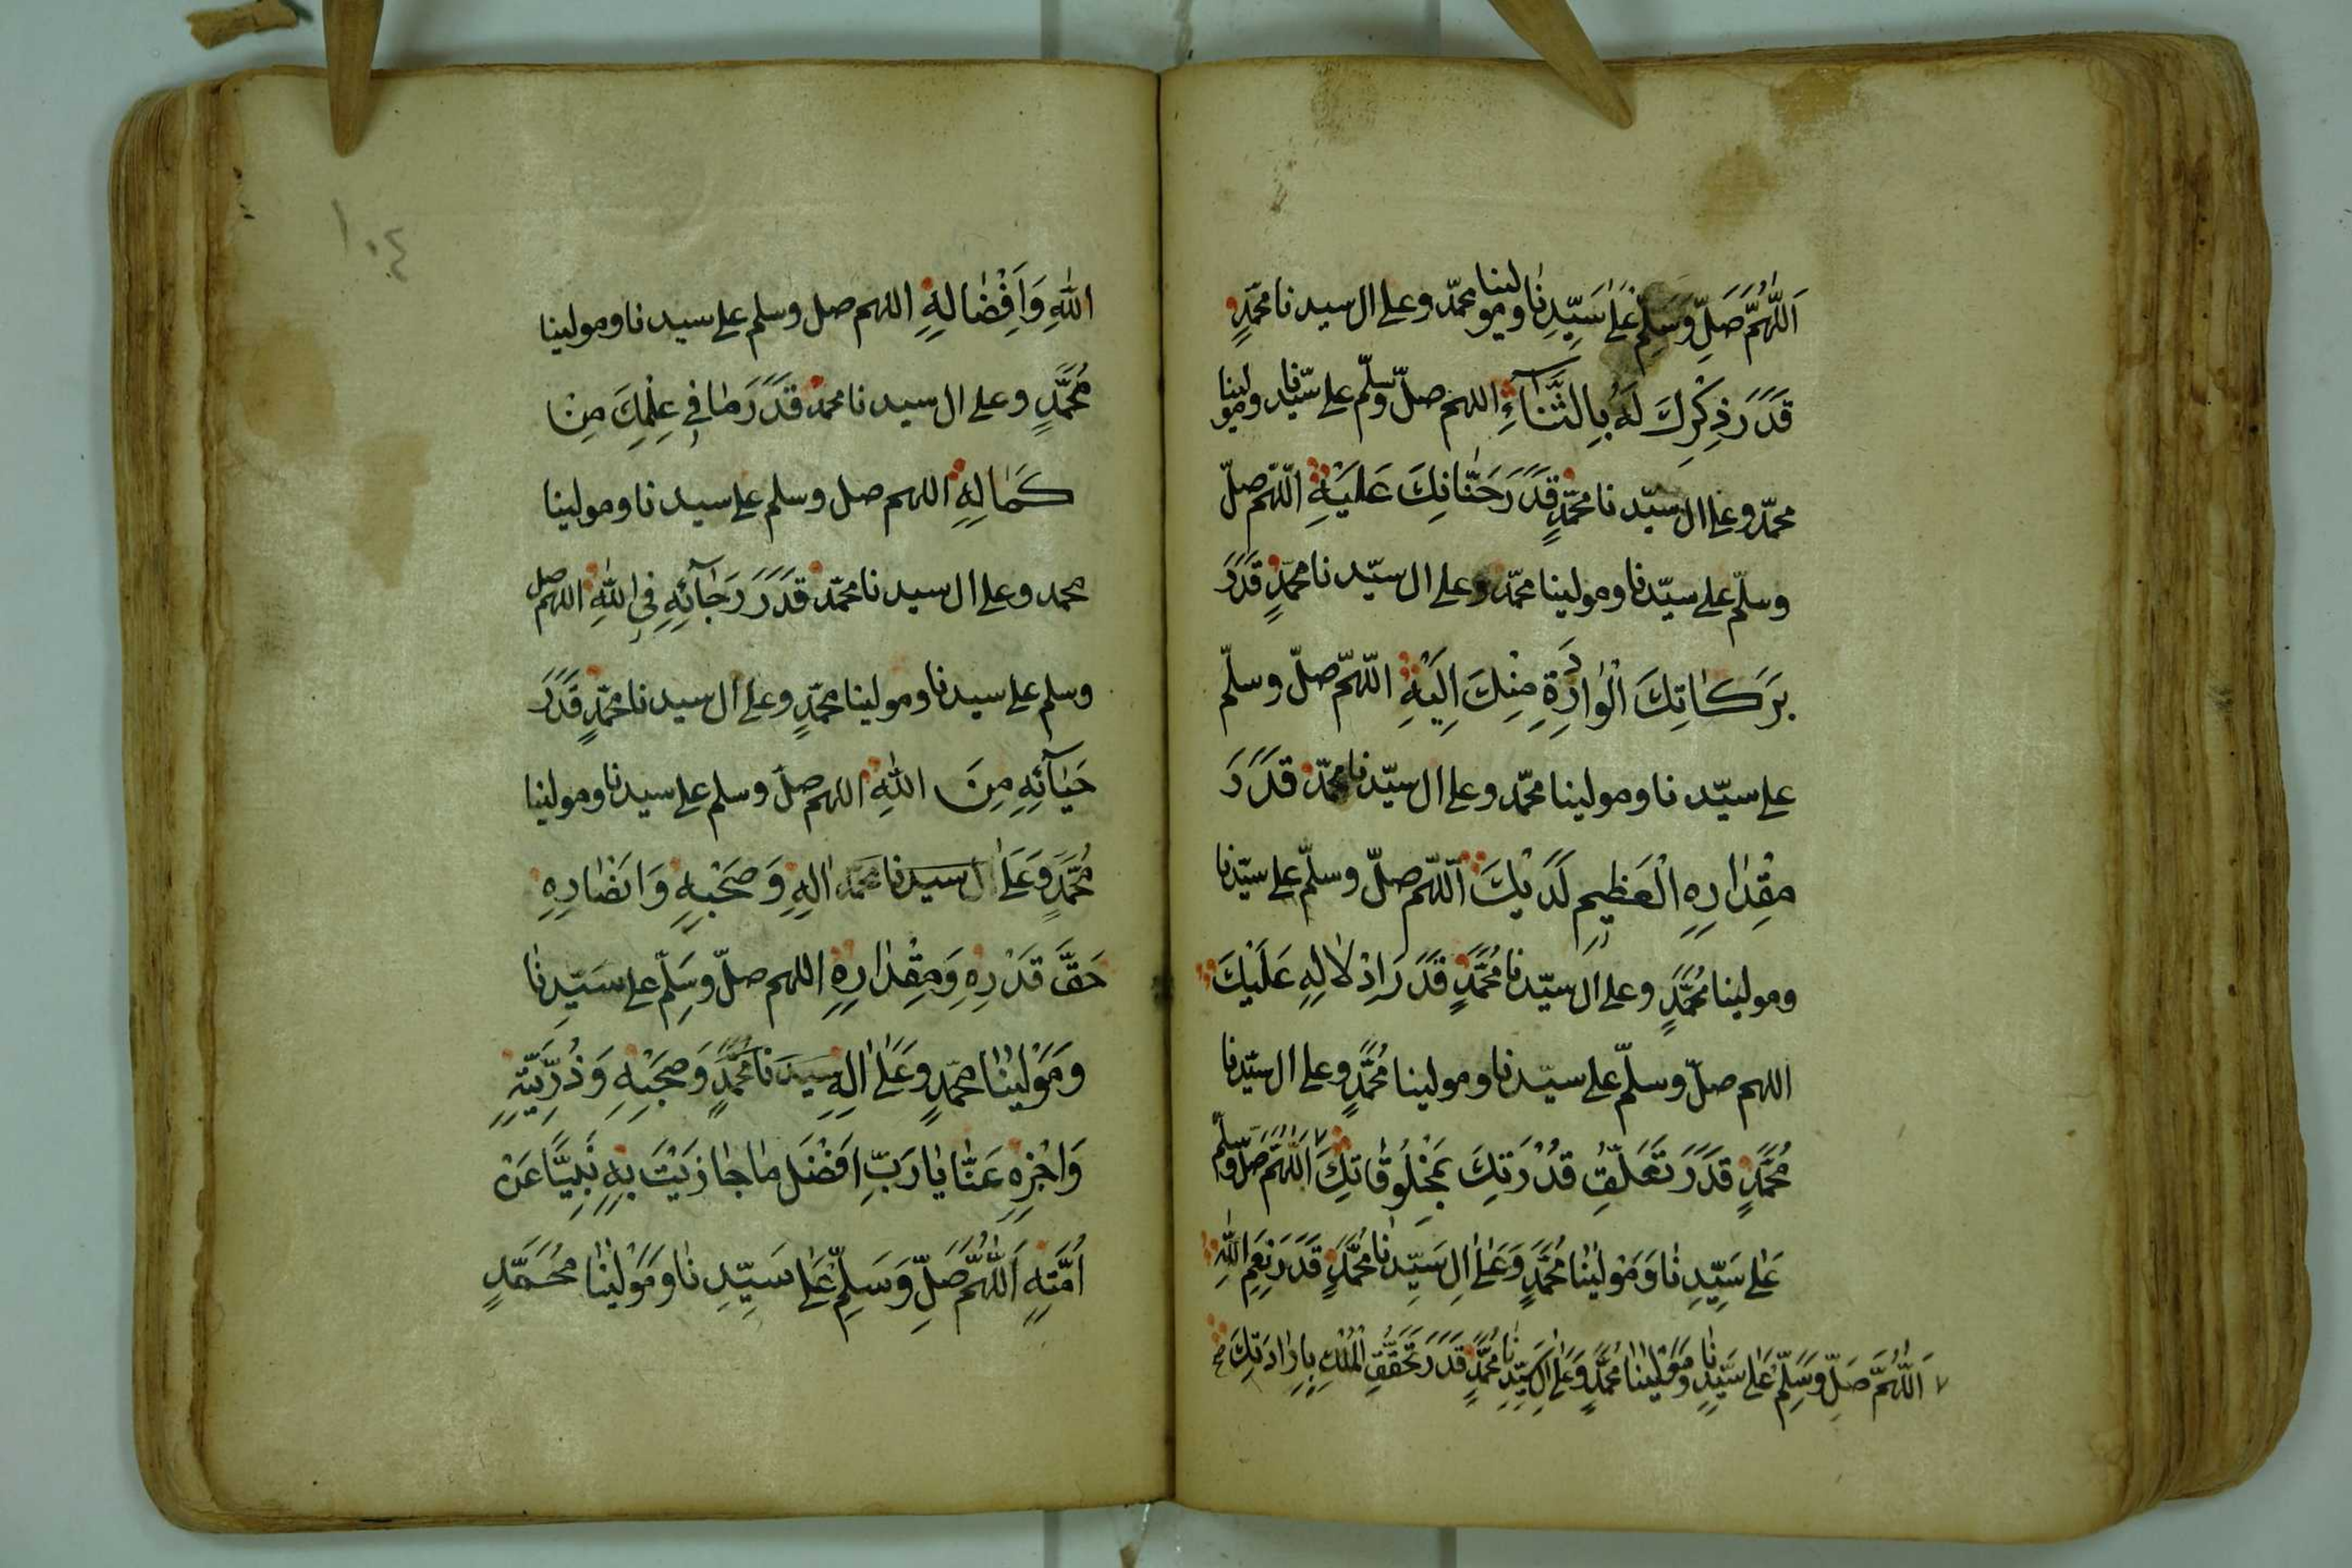 اَللّٰهُمَّ صَلِّ وَسَلِّمْ عَلٰى سَيِّدِنَا ومولينا محمّد وعلى ال سيدنا محمّدٍ
قَدَرَ ذِكْرِكَ لَهُ بِالثَّنَآءِ اللهم صلّ وسلّم على سيّدنا ومولينا
محمّد وعلى ال سيّدنا محمّدٍ قَدَرَ حَنَانِكَ عَلَيْهِ اللّهمّ صلّ
وسلّم على سيّدنا ومولينا محمّد وعلى ال سيّدنا محمّدٍ قَدَرَ
بَرَكَاتِكَ الْوَارِدَةِ مِنْكَ اِلَيْهِ اللّهمّ صلّ وسلّم
على سيّدنا ومولينا محمّد وعلى ال سيّدنا محمّد قَدَرَ
مِقْدَارِهِ الْعَظِيمِ لَدَيْكَ اللّهم صلّ وسلّم على سيّدنا
ومولينا مُحَمَّدٍ وعلى ال سيّدنا مُحَمَّدٍ قَدَرَ اِدْلَالِهِ عَلَيْكَ
اللهم صلّ وسلّم على سيّدنا ومولينا مُحَمَّدٍ وعلى ال سيّدنا
مُحَمَّدٍ قَدَرَ تَعَلُّقِ قُدْرَتِكَ بِمَخْلُوقَاتِكَ ٧ اَللّٰهُمَّ صَلِّ وَسَلِّمْ
عَلٰى سَيِّدِنَا وَمَوْلٰينَا مُحَمَّدٍ وَعَلٰى اٰلِ سَيِّدِنَا مُحَمَّدٍ قَدَرَ نِعَمِ اللّٰهِ
٧ اَللّٰهُمَّ صَلِّ وَسَلِّمْ عَلٰى سَيِّدِنَا وَمَوْلٰينَا مُحَمَّدٍ وَعَلٰى اٰلِ سَيِّدِنَا مُحَمَّدٍ قَدَرَ تَحَقُّقِ الْمُلْكِ بِاِرَادَتِكَ صح
١٠٤
اللّٰهِ وَاِفْضَالِهِ اللهم صل وسلم على سيدنا ومولينا
مُحَمَّدٍ وعلى ال سيدنا محمد قَدَرَ مَا فِي عِلْمِكَ مِنْ
كَمَالِهِ اللهم صل وسلم على سيدنا ومولينا
محمد وعلى ال سيدنا محمّد قَدَرَ رَجَآئِهِ فِي اللّٰهِ اللهم صل
وسلم على سيدنا ومولينا محمّدٍ وعلى ال سيدنا محمّدٍ قَدَرَ
حَيَآئِهِ مِنَ اللّٰهِ اللهم صل وسلم على سيدنا ومولينا
مُحَمَّدٍ وَعَلٰى ال سيدنا محمد اٰلِهِ وَصَحْبِهِ وَاَنْصَارِهِ
حَقَّ قَدْرِهِ وَمِقْدَارِهِ اللهم صلّ وسَلِّم على سَيِّدِنَا
وَمَوْلٰينَا محمّدٍ وَعَلٰى اٰلِهِ سَيِّدنا مُحَمَّدٍ وَصَحْبِهِ وَذُرِّيَّتِهِ
وَاجْزِهِ عَنَّا يَا رَبِّ اَفْضَلَ مَا جَازَيْتَ بِهِ نَبِيًّا عَنْ
اُمَّتِهِ اَللّٰهُمَّ صَلِّ وَسَلِّمْ عَلٰى سَيِّدِنَا وَمَوْلٰينَا مُحَمَّدٍ